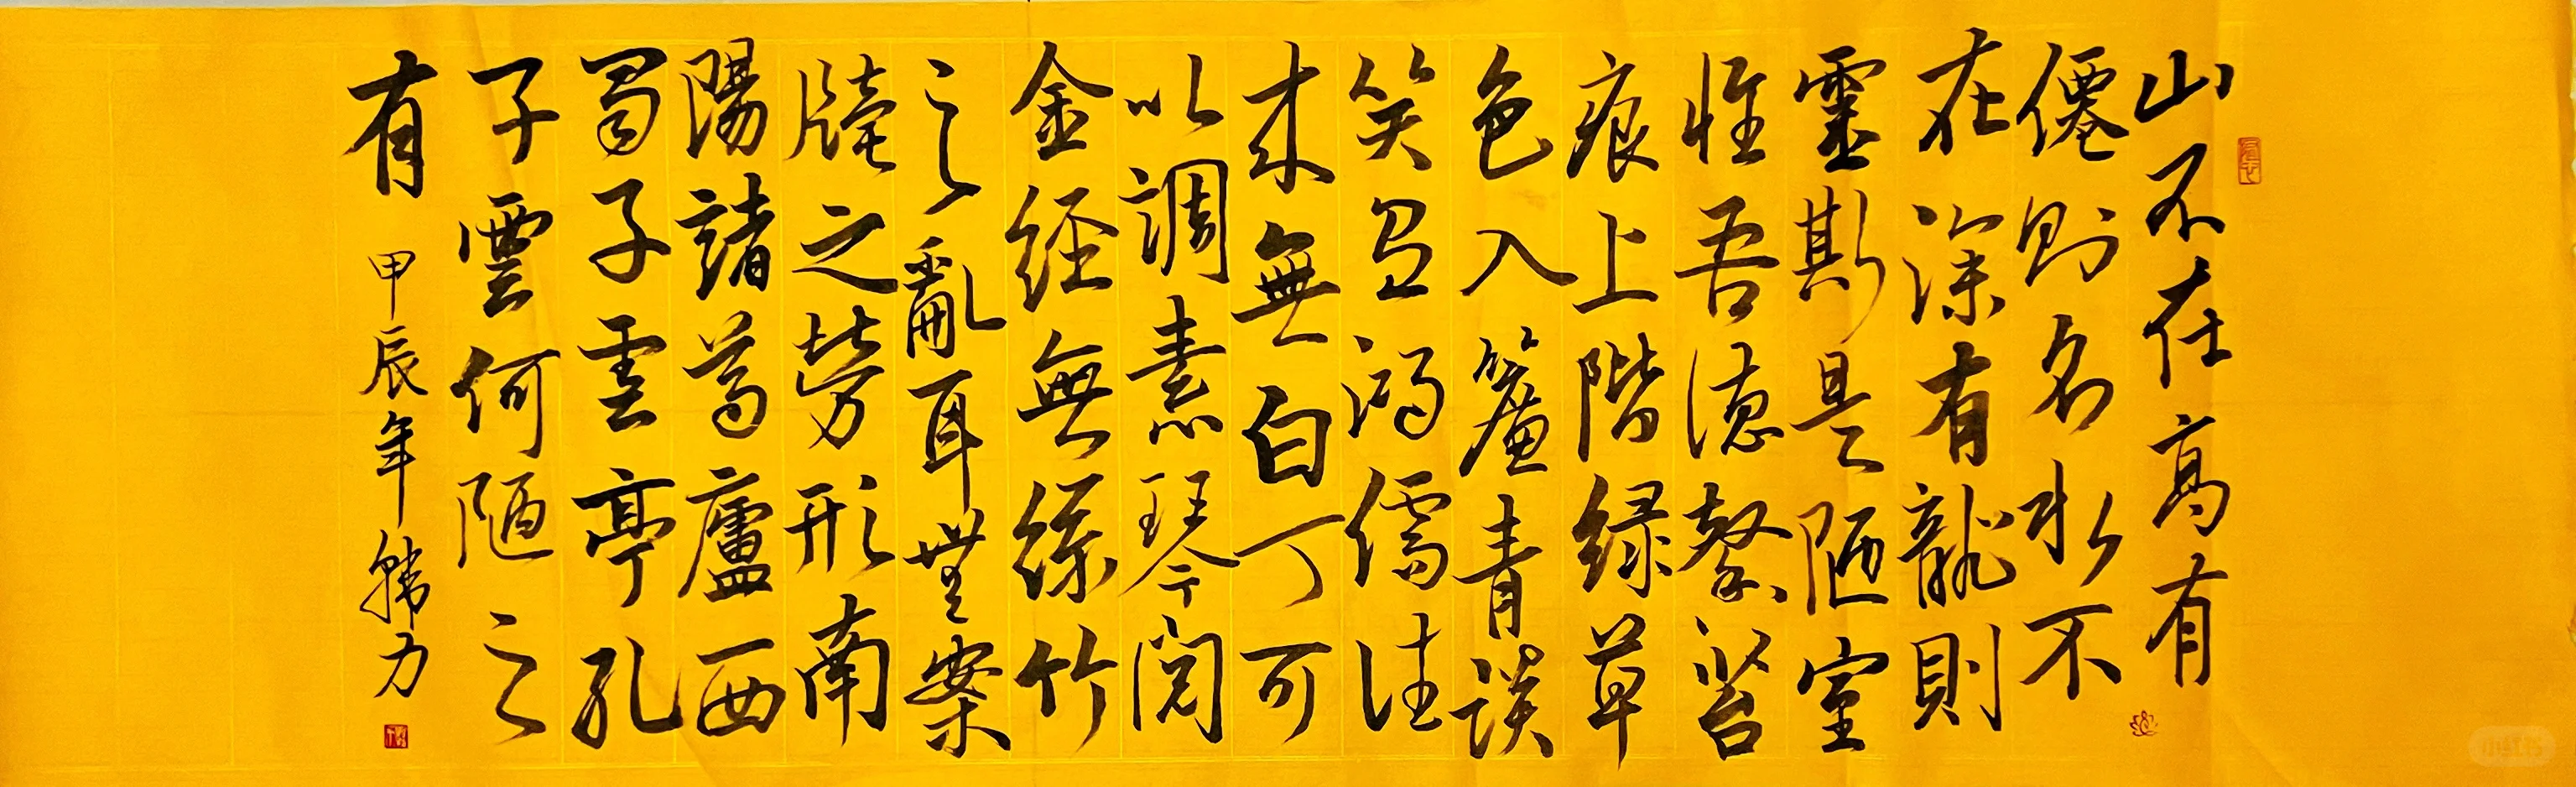 山不在高有
僊则名水不
在深有龍則
靈斯是陋室
惟吾德馨苔
痕上階緑草
色入簾青談
笑有鴻儒往
来無白丁可
以調素琴閱
金經無絲竹
之亂耳無案
牘之勞形南
陽諸葛廬西
蜀子雲亭孔
子雲何陋之
有 甲辰年韓力
小红书